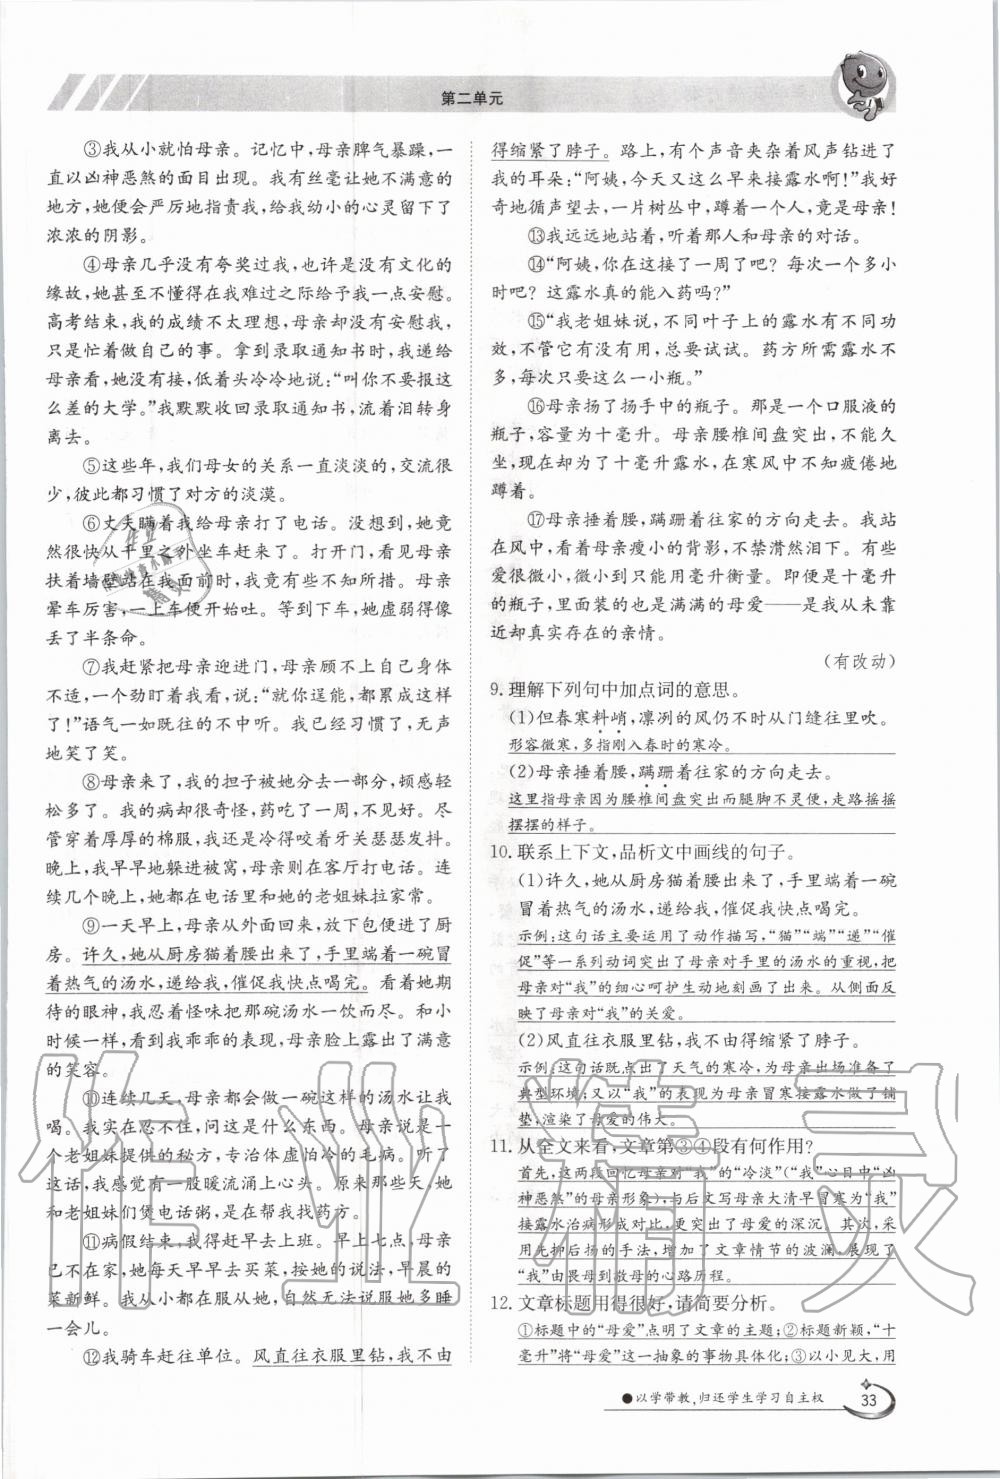 第二单元
③我从小就怕母亲。记忆中,母亲脾气暴躁,一
直以凶神恶煞的面目出现。我有丝毫让她不满意的
地方,她便会严厉地指责我,给我幼小的心灵留下了
浓浓的阴影。
④母亲几乎没有夸奖过我,也许是没有文化的
缘故,她甚至不懂得在我难过之际给予我一点安慰。
高考结束,我的成绩不太理想,母亲却没有安慰我,
只是忙着做自己的事。拿到录取通知书时,我递给
母亲看,她没有接,低着头冷冷地说:“叫你不要报这
么差的大学。”我默默收回录取通知书,流着泪转身
离去。
⑤这些年,我们母女的关系一直淡淡的,交流很
少,彼此都习惯了对方的淡漠。
⑥丈夫瞒着我给母亲打了电话。没想到,她竟
然很快从千里之外坐车赶来了。打开门,看见母亲
扶着墙壁站在我面前时,我竟有些不知所措。母亲
晕车厉害,一上车便开始吐。等到下车,她虚弱得像
丢了半条命。
⑦我赶紧把母亲迎进门,母亲顾不上自己身体
不适,一个劲盯着我看,说:“就你逞能,都累成这样
了!”语气一如既往的不中听。我已经习惯了,无声
地笑了笑。
⑧母亲来了,我的担子被她分去一部分,顿感轻
松多了。我的病却很奇怪,药吃了一周,不见好。尽
管穿着厚厚的棉服,我还是冷得咬着牙关瑟瑟发抖。
晚上,我早早地躲进被窝,母亲在客厅打电话。连
续几个晚上,她都在电话里和她的老姐妹拉家常。
⑨一天早上,母亲从外面回来,放下包便进了厨
房。许久,她从厨房猫着腰出来了,手里端着一碗冒
着热气的汤水,递给我,催促我快点喝完。看着她期
待的眼神,我忍着怪味把那碗汤水一饮而尽。和小
时候一样,看到我乖乖的表现,母亲脸上露出了满意
的笑容。
⑩连续几天,母亲都会做一碗这样的汤水让我
喝。我实在忍不住,问这是什么东西。母亲说是一
个老姐妹提供的秘方,专治体虚怕冷的毛病。听了
这话,我感觉有一股暖流涌上心头。原来那些天,她
和老姐妹们煲电话粥,是在帮我找药方。
⑪病假结束,我得赶早去上班。早上七点,母亲
已不在家,她每天早早去买菜,按她的说法,早晨的
菜新鲜。我从小都在服从她,自然无法说服她多睡
一会儿。
⑫我骑车赶往单位。风直往衣服里钻,我不由
得缩紧了脖子。路上,有个声音夹杂着风声钻进了
我的耳朵:“阿姨,今天又这么早来接露水啊!”我好
奇地循声望去,一片树丛中,蹲着一个人,竟是母亲!
⑬我远远地站着,听着那人和母亲的对话。
⑭“阿姨,你在这接了一周了吧?每次一个多小
时吧?这露水真的能入药吗?”
⑮“我老姐妹说,不同叶子上的露水有不同功
效,不管它有没有用,总要试试。药方所需露水不
多,每次只要这么一小瓶。”
⑯母亲扬了扬手中的瓶子。那是一个口服液的
瓶子,容量为十毫升。母亲腰椎间盘突出,不能久
坐,现在却为了十毫升露水,在寒风中不知疲倦地
蹲着。
⑰母亲捶着腰,蹒跚着往家的方向走去。我站
在风中,看着母亲瘦小的背影,不禁潸然泪下。有些
爱很微小,微小到只能用毫升衡量。即便是十毫升
的瓶子,里面装的也是满满的母爱——是我从未靠
近却真实存在的亲情。
(有改动)
9.理解下列句中加点词的意思。
(1)但春寒料峭,凛冽的风仍不时从门缝往里吹。
形容微寒,多指刚入春时的寒冷。
(2)母亲捶着腰,蹒跚着往家的方向走去。
这里指母亲因为腰椎间盘突出而腿脚不灵便,走路摇摇
摆摆的样子。
10.联系上下文,品析文中画线的句子。
(1)许久,她从厨房猫着腰出来了,手里端着一碗
冒着热气的汤水,递给我,催促我快点喝完。
示例:这句话主要运用了动作描写,“猫”“端”“递”“催
促”等一系列动词突出了母亲对手里的汤水的重视,把
母亲对“我”的细心呵护生动地刻画了出来。从侧面反
映了母亲对“我”的关爱。
(2)风直往衣服里钻,我不由得缩紧了脖子。
示例:这句话既点出了天气的寒冷,为母亲出场准备了
典型环境;又以“我”的表现为母亲冒寒接露水做了铺
垫,渲染了母爱的伟大。
11.从全文来看,文章第③④段有何作用?
首先,这两段回忆母亲对“我”的“冷淡”(“我”心目中“凶
神恶煞”的母亲形象),与后文写母亲大清早冒寒为“我”
接露水治病形成对比,更突出了母爱的深沉。其次,采
用先抑后扬的手法,增加了文章情节的波澜,展现了
“我”由畏母到敬母的心路历程。
12.文章标题用得很好,请简要分析。
①标题中的“母爱”点明了文章的主题;②标题新颖,“十
毫升”将“母爱”这一抽象的事物具体化;③以小见大,用
●以学带教,归还学生学习自主权
33
作业精灵